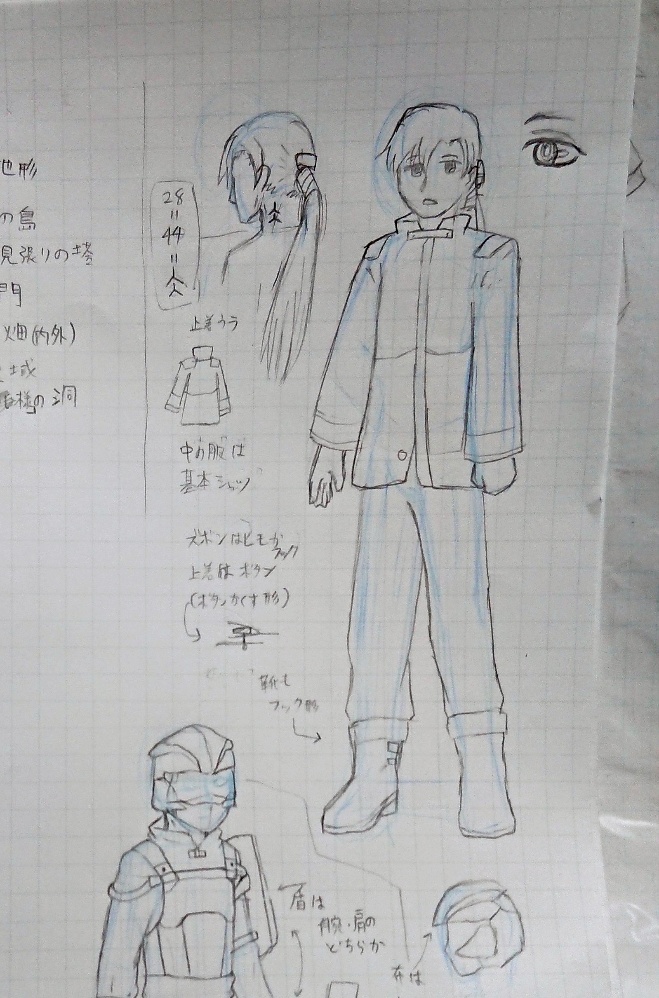 地形
の島
見張りの塔
門
畑(内外)
域
様の洞
28
=
44
=
上着ウラ
中の服は
基本シャツ
ズボンはヒモか
フック
上着はボタン
(ボタンかくす形)
靴も
フック形
盾は
腕・肩の
どちらか
布は